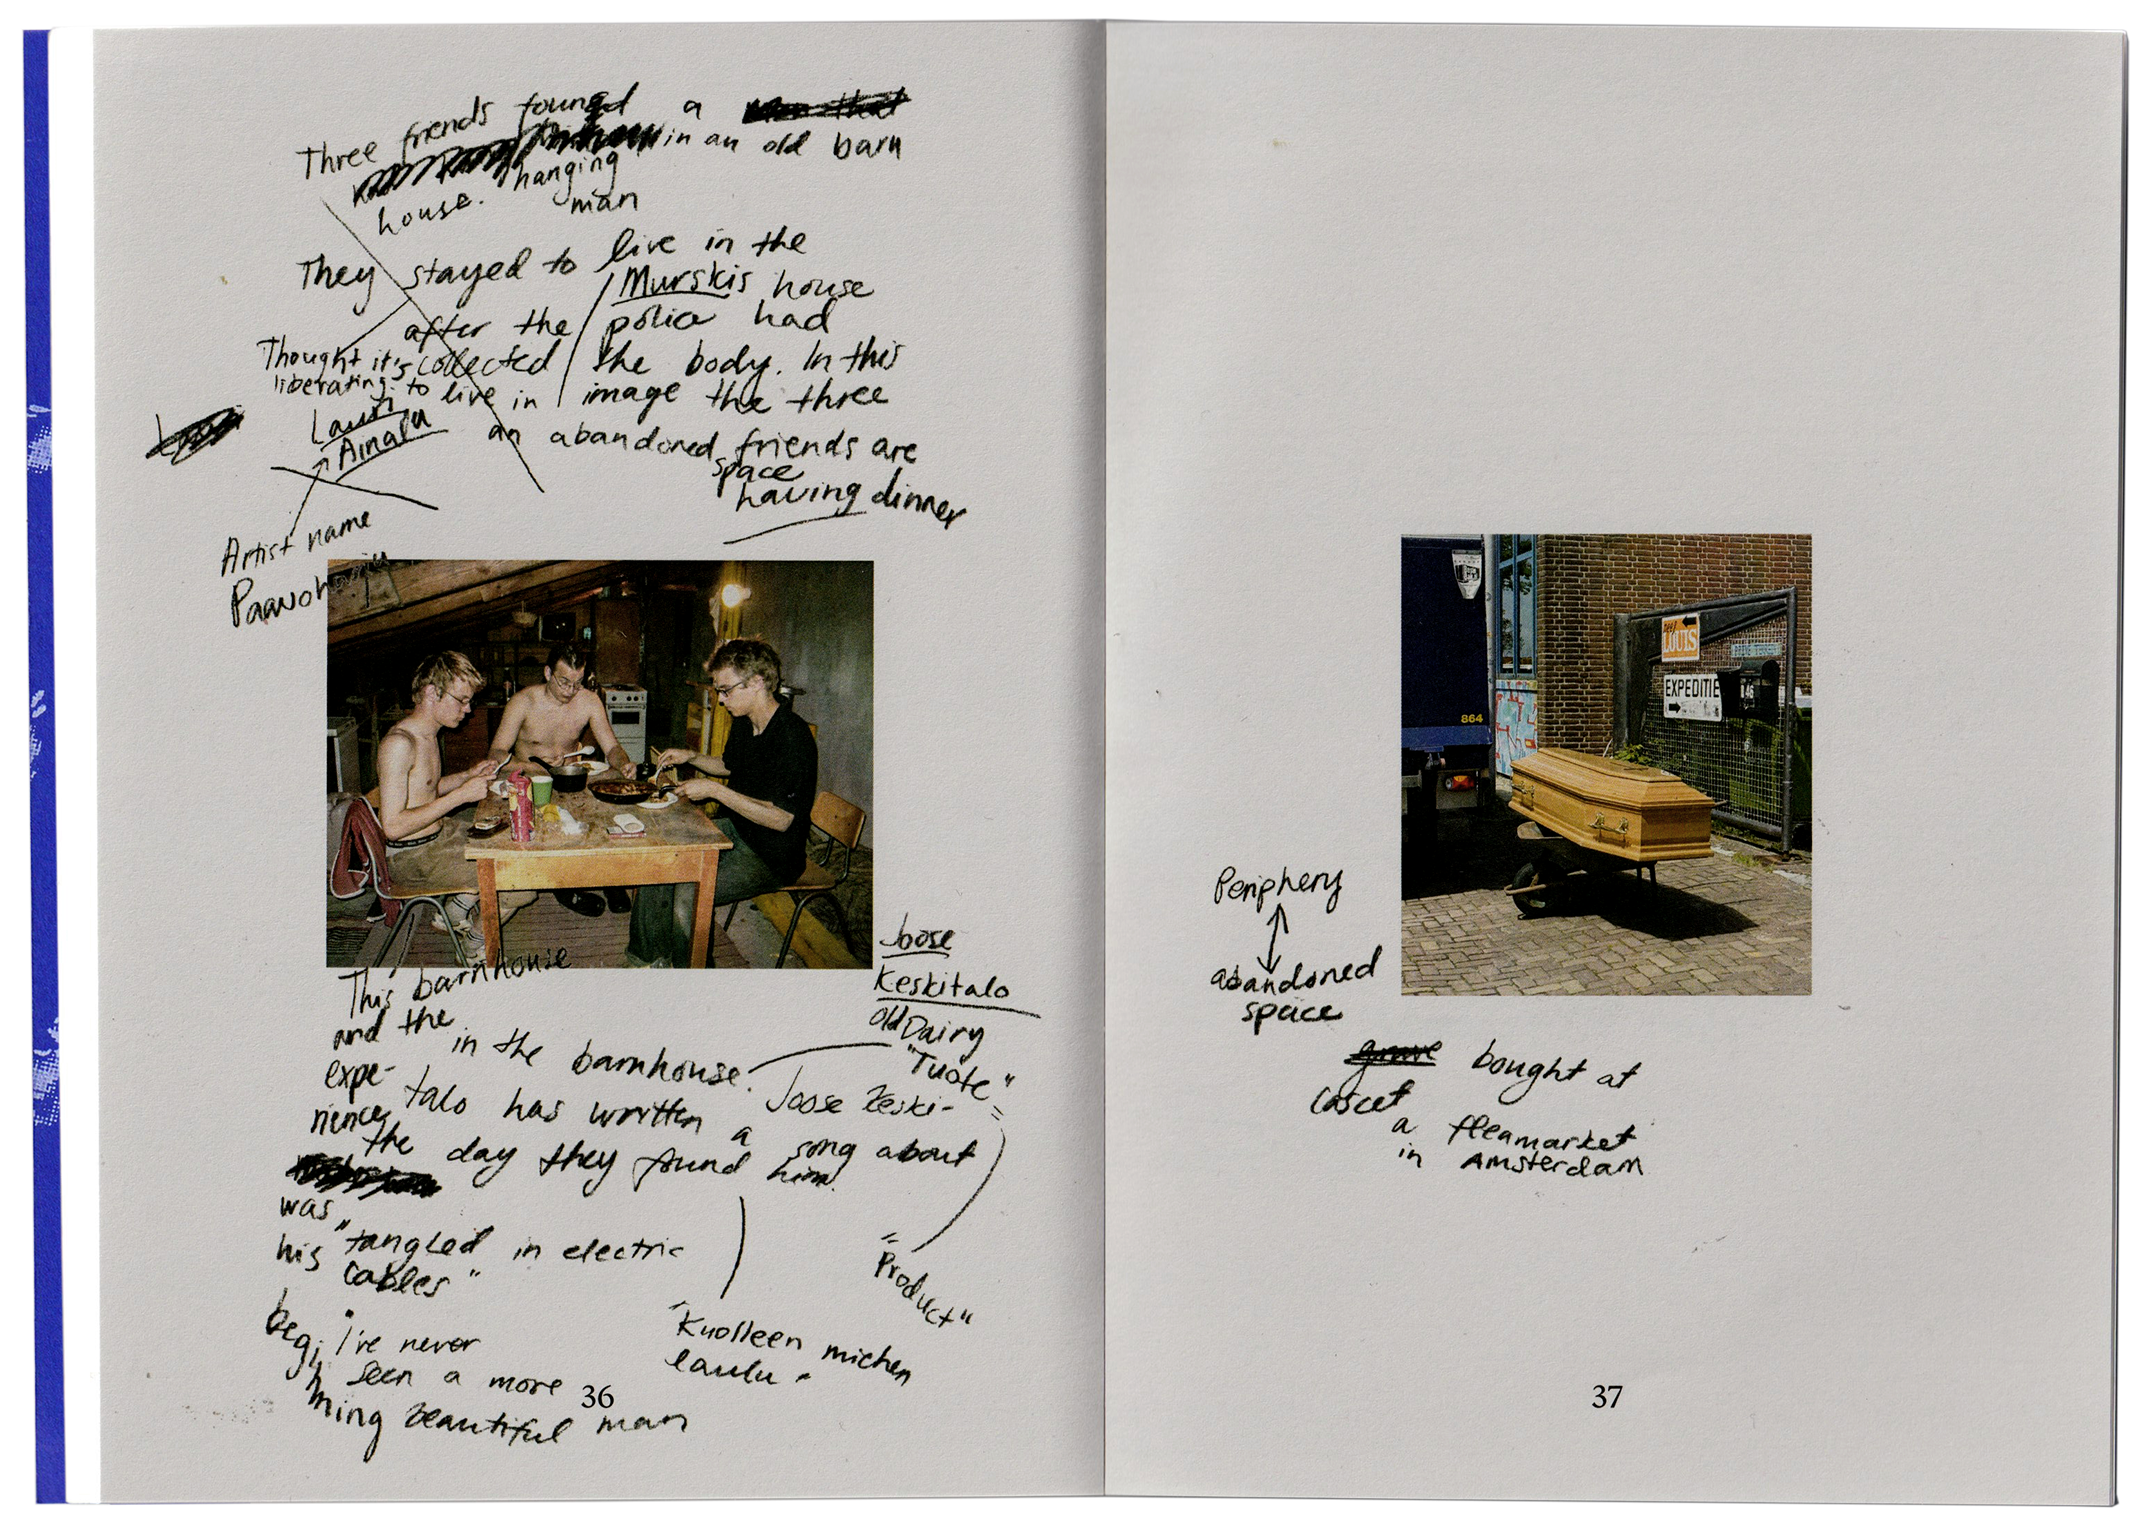 Three friends found a
in an old barn
house. hanging
man
They stayed to live in the
Murskis house
after the police had
Thought it's collected the body. In this
liberating to live in image the three
Lauri
Ainala
an abandoned friends are
space
having dinner
Artist name
Paavoharju
This barnhouse
and the
in the barnhouse.
expe-
rience
Joose
Keskitalo
old Dairy
"Tuote"
=
"Product"
Joose Keski-
talo has written a song about
the day they found him
was
his "tangled in electric
cables"
begi
nning
"I've never
seen a more
beautiful man
"Kuolleen miehen
laulu"
36
864
LOUIS
EXPEDITIE
Periphery
abandoned
space
grave bought at
Cascet
a fleamarket
in Amsterdam
37